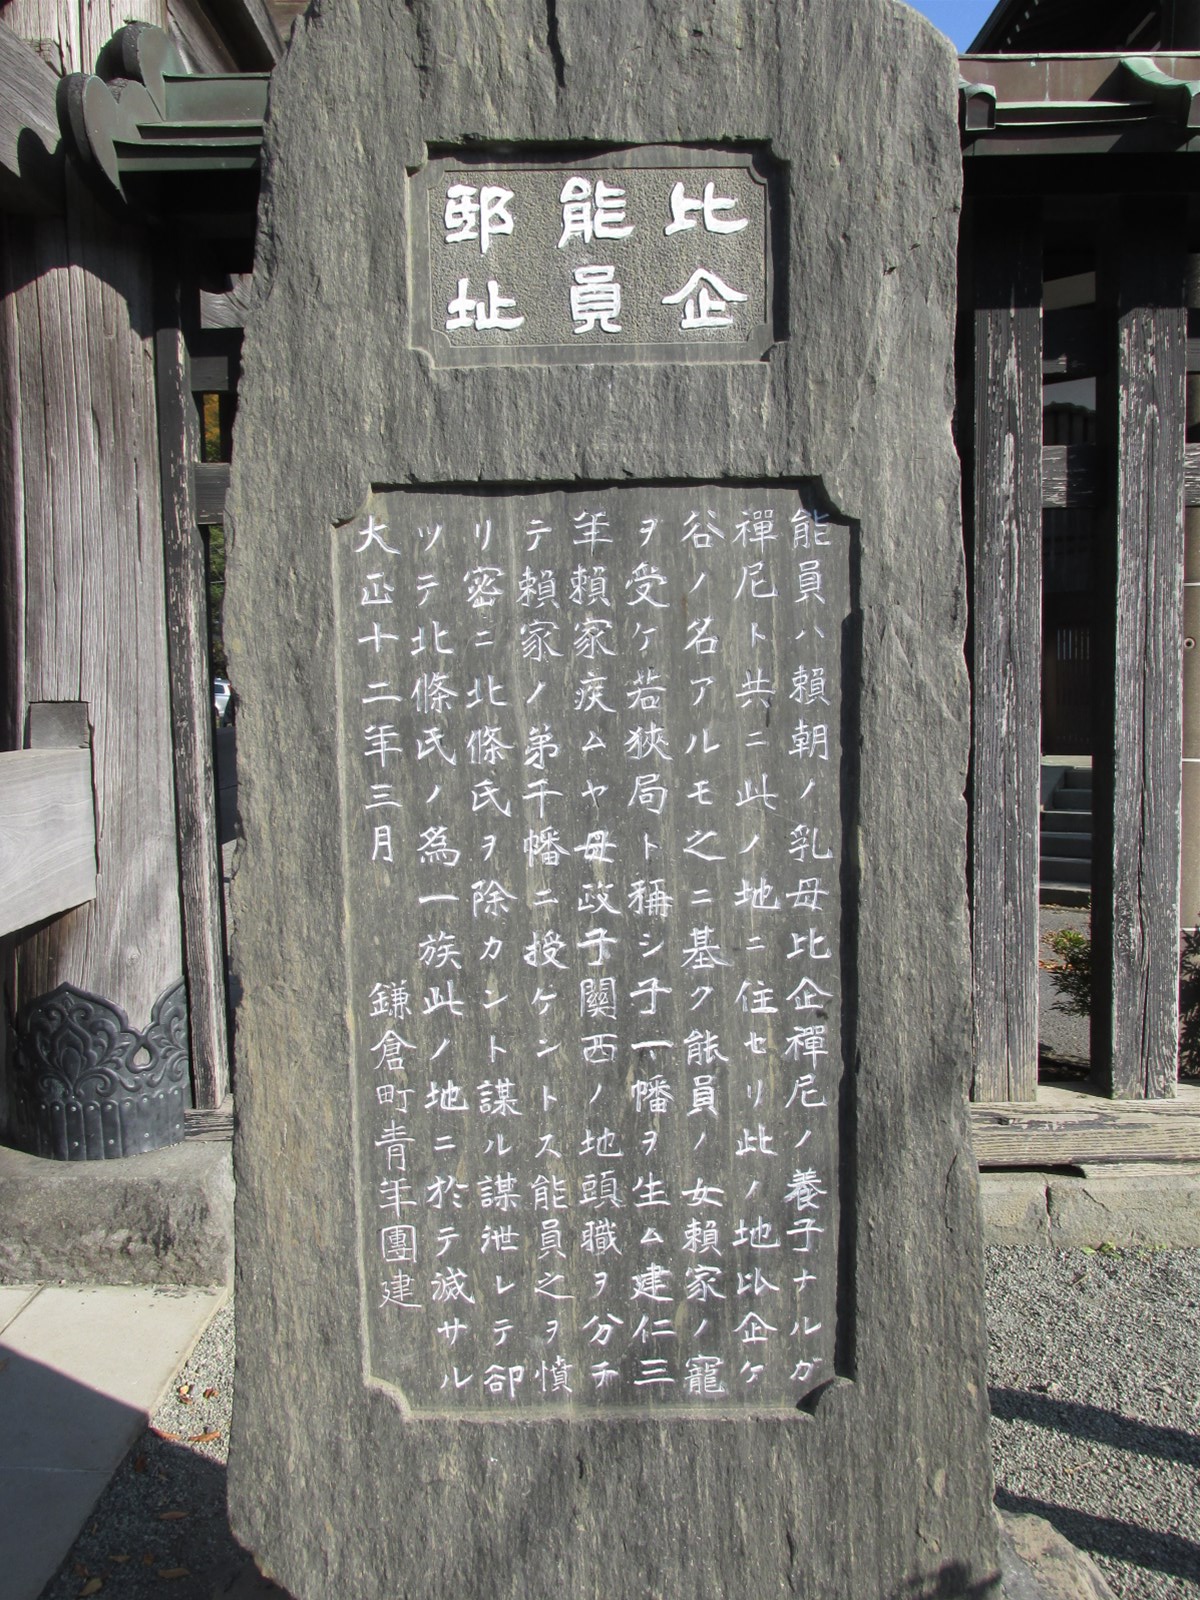 比企
能員
邸址
能員ハ頼朝ノ乳母比企禪尼ノ養子ナルガ
禪尼ト共ニ此ノ地ニ住セリ此ノ地比企ケ
谷ノ名アルモ之ニ基ク能員ノ女頼家ノ寵
ヲ受ケ若狹局ト稱シ子一幡ヲ生ム建仁三
年頼家疾ムヤ母政子關西ノ地頭職ヲ分チ
テ頼家ノ弟千幡ニ授ケントス能員之ヲ憤
リ密ニ北條氏ヲ除カント謀ル謀泄レテ卻
ツテ北條氏ノ為一族此ノ地ニ於テ滅サル
大正十二年三月 鎌倉町青年團建